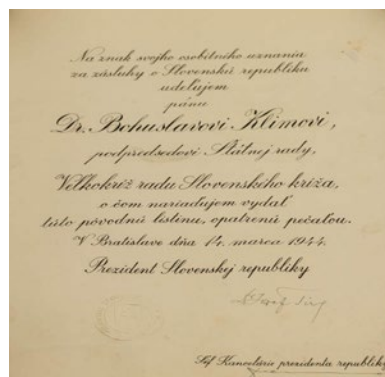 Na znak svojho osobitného uznania
za zásluhy o Slovenskú republiku
udeľujem
pánu
Dr. Bohuslavovi Klimovi,
podpredsedovi Štátnej rady,
Veľkokríž radu Slovenského kríža,
o čom nariaďujem vydať
túto pôvodnú listinu, opatrenú pečaťou.
V Bratislave dňa 14. marca 1944.
Prezident Slovenskej republiky
Šéf Kancelárie prezidenta republiky